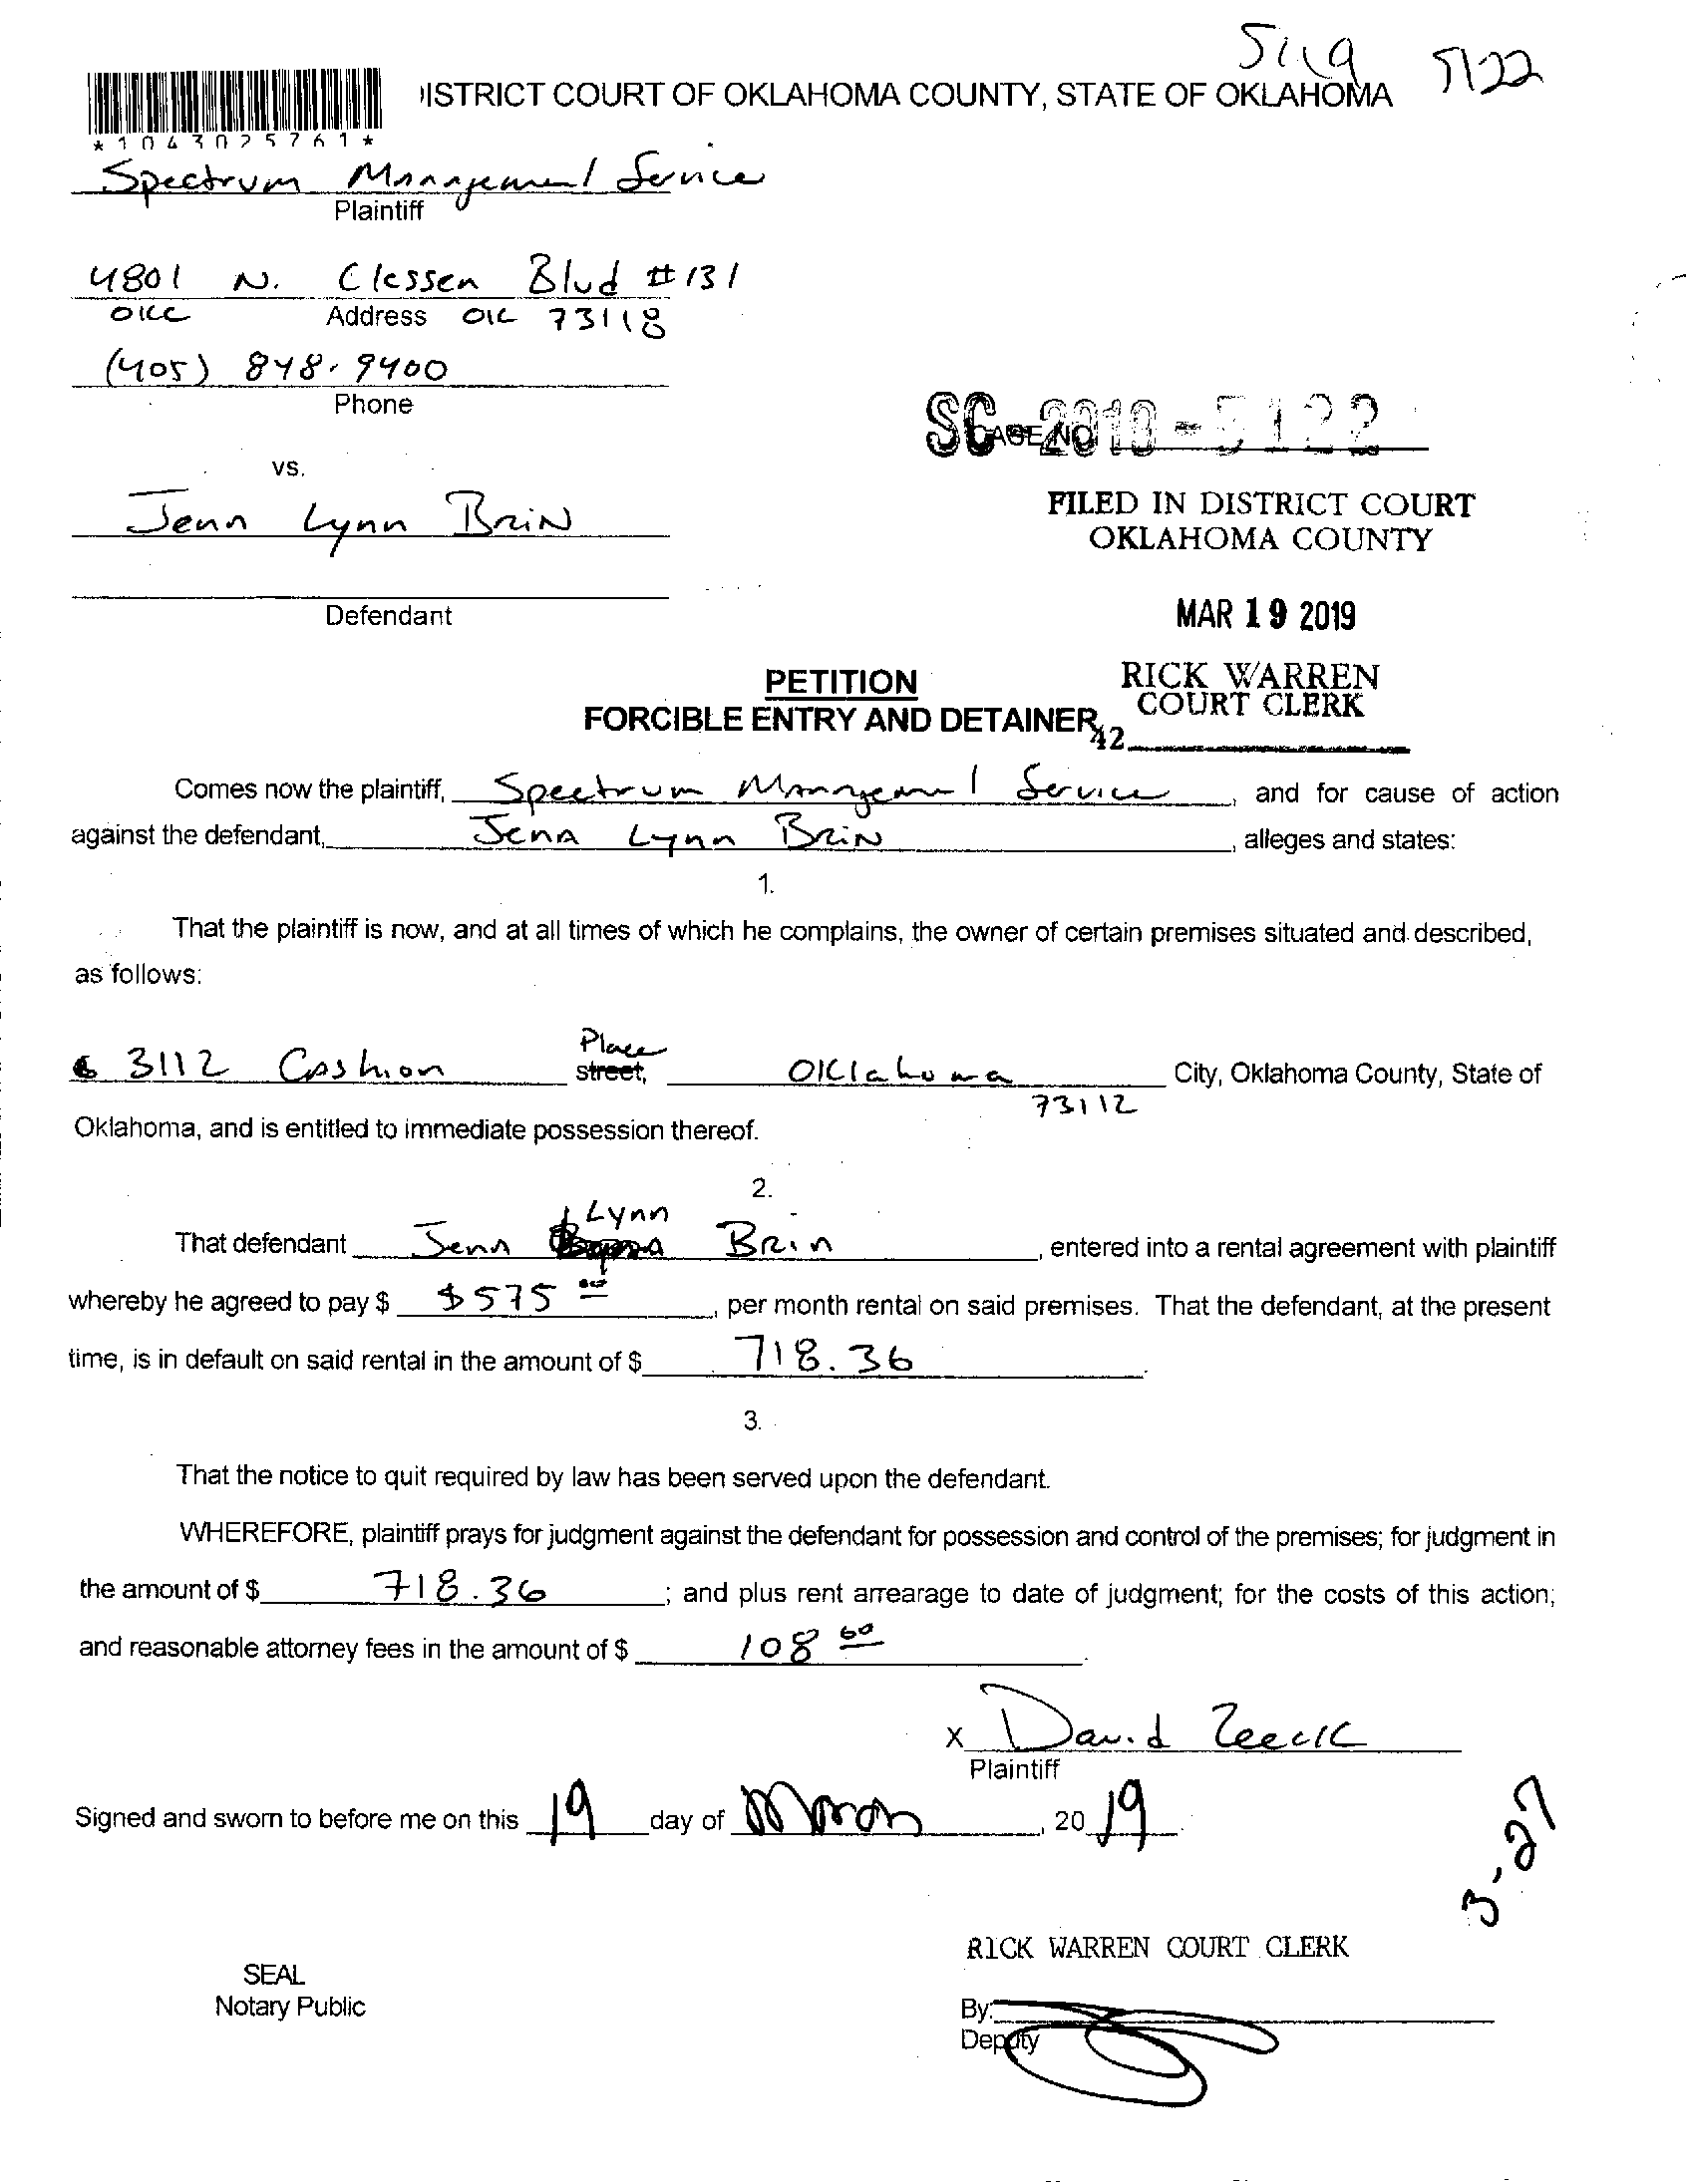 5119 5122
DISTRICT COURT OF OKLAHOMA COUNTY, STATE OF OKLAHOMA
*1043025761*
Spectrum Management Service
Plaintiff
4801 N. Classen Blvd #131
OKC Address OK 73118
(405) 848-9400
Phone
SC-2019-5122
CASE NO.
vs.
Jena Lynn Brin
FILED IN DISTRICT COURT
OKLAHOMA COUNTY
Defendant
MAR 19 2019
PETITION
RICK WARREN
COURT CLERK
FORCIBLE ENTRY AND DETAINER
42
Comes now the plaintiff, Spectrum Management Service, and for cause of action
against the defendant, Jena Lynn Brin, alleges and states:
1.
That the plaintiff is now, and at all times of which he complains, the owner of certain premises situated and described,
as follows:
3112 Cashion Place street, Oklahoma City, Oklahoma County, State of
73112
Oklahoma, and is entitled to immediate possession thereof.
2.
That defendant Jena Lynn Brin, entered into a rental agreement with plaintiff
whereby he agreed to pay $ $575 00, per month rental on said premises. That the defendant, at the present
time, is in default on said rental in the amount of $ 718.36.
3.
That the notice to quit required by law has been served upon the defendant.
WHEREFORE, plaintiff prays for judgment against the defendant for possession and control of the premises; for judgment in
the amount of $ 718.36; and plus rent arrearage to date of judgment; for the costs of this action;
and reasonable attorney fees in the amount of $ 108 60.
X David Zeeck
Plaintiff
Signed and sworn to before me on this 19 day of March, 2019.
3-27
RICK WARREN COURT CLERK
SEAL
Notary Public
By:
Deputy